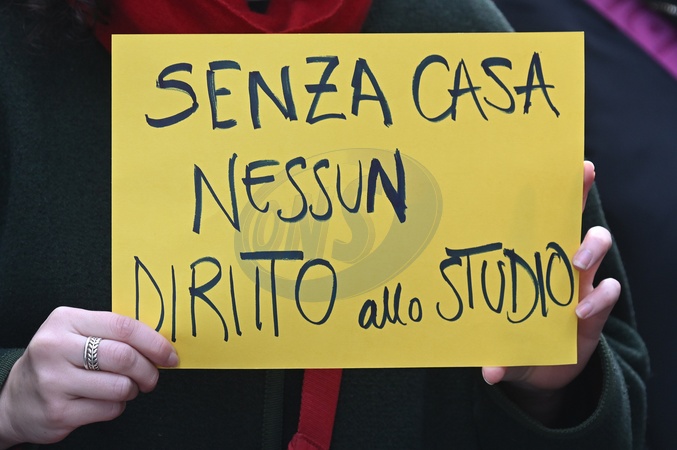 SENZA CASA
NESSUN
DIRITTO allo STUDIO